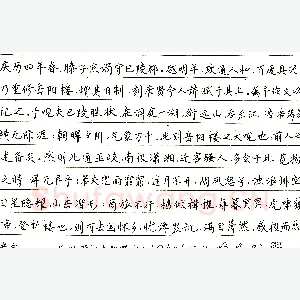 庆历四年春,滕子京谪守巴陵郡。越明年,政通人和,百废具兴
乃重修岳阳楼,增其旧制,刻唐贤今人诗赋于其上。属予作文以
记之。予观夫巴陵胜状,在洞庭一湖。衔远山,吞长江,浩浩汤汤
横无际涯;朝晖夕阴,气象万千。此则岳阳楼之大观也,前人之
述备矣。然则北通巫峡,南极潇湘,迁客骚人,多会于此,览物
之情,得无异乎?若夫霪雨霏霏,连月不开,阴风怒号,浊浪排空
日星隐耀,山岳潜形;商旅不行,樯倾楫摧;薄暮冥冥,虎啸
登斯楼也,则有去国怀乡,忧谗畏讥,满目萧然,感极而